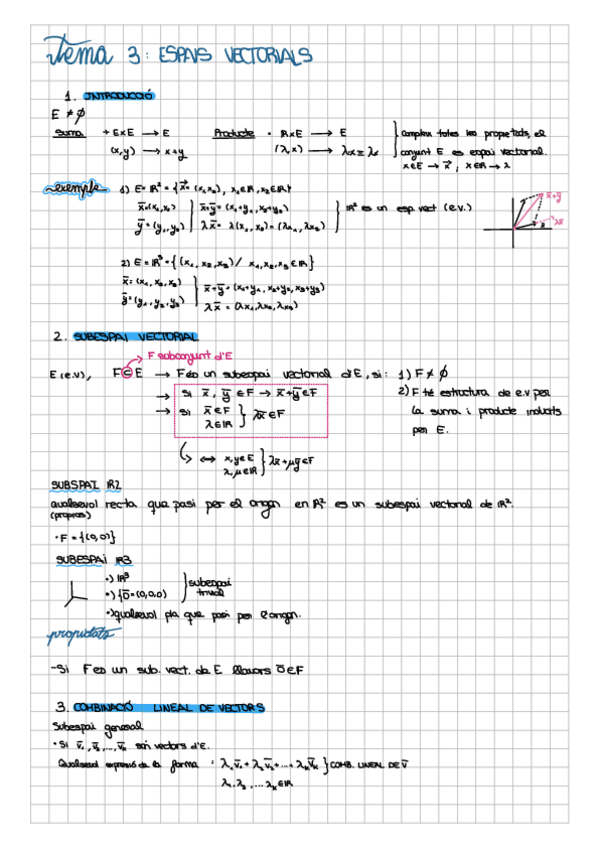 Tema 3: ESPAIS VECTORIALS
1. INTRODUCCIÓ
E ≠ ∅
Suma + E×E → E Producte · R×E → E
(x,y) → x+y (λ,x) → λx = λx
Compleix totes les propietats, el
conjunt E es espai vectorial.
x∈E → x⃗ ; x∈ℝ → λ
exemple 1) E=ℝ²={x̄=(x₁,x₂), x₁∈ℝ, x₂∈ℝ}
x̄=(x₁,x₂) } x̄+ȳ=(x₁+y₁,x₂+y₂)
ȳ=(y₁,y₂) } λx̄=λ(x₁,x₂)=(λx₁,λx₂)
ℝ² es un esp. vect (e.v.)
x̄+ȳ
λx̄
2) E=ℝ³={(x₁,x₂,x₃)/ x₁,x₂,x₃∈ℝ}
x̄=(x₁,x₂,x₃) } x̄+ȳ=(x₁+y₁,x₂+y₂,x₃+y₃)
ȳ=(y₁,y₂,y₃) } λx̄=(λx₁,λx₂,λx₃)
2. SUBESPAI VECTORIAL
F subconjunt d'E
E (e.v), F⊂E → F és un subespai vectorial d'E, si: 1) F≠∅
→ Si x̄, ȳ∈F → x̄+ȳ∈F
→ Si x̄∈F
λ∈ℝ } λx̄∈F
2) F té estructura de e.v per
la suma i producte induïts
per E.
↔ x,y∈E
λ,μ∈ℝ } λx̄+μȳ∈F
SUBSPAI ℝ2
qualsevol recta que pasi per el origen en ℝ² es un subespai vectorial de ℝ².
(propios)
·F={(0,0)}
SUBESPAI ℝ3
·) ℝ³
·) {0̄=(0,0,0)
} subespai
trivial
·) qualsevol pla que pasi per l'origen.
propietats
-Si F es un sub. vect. de E llavors 0̄∈F
3. COMBINACIÓ LINEAL DE VECTORS
Subespai generat
·Si v̄₁, v̄₂,..., v̄ₖ són vectors d'E.
Qualsevol expresió de la forma : λ₁v̄₁+λ₂v̄₂+...+λₖv̄ₖ } COMB. LINEAL DE v̄
λ₁,λ₂,...,λₖ∈ℝ